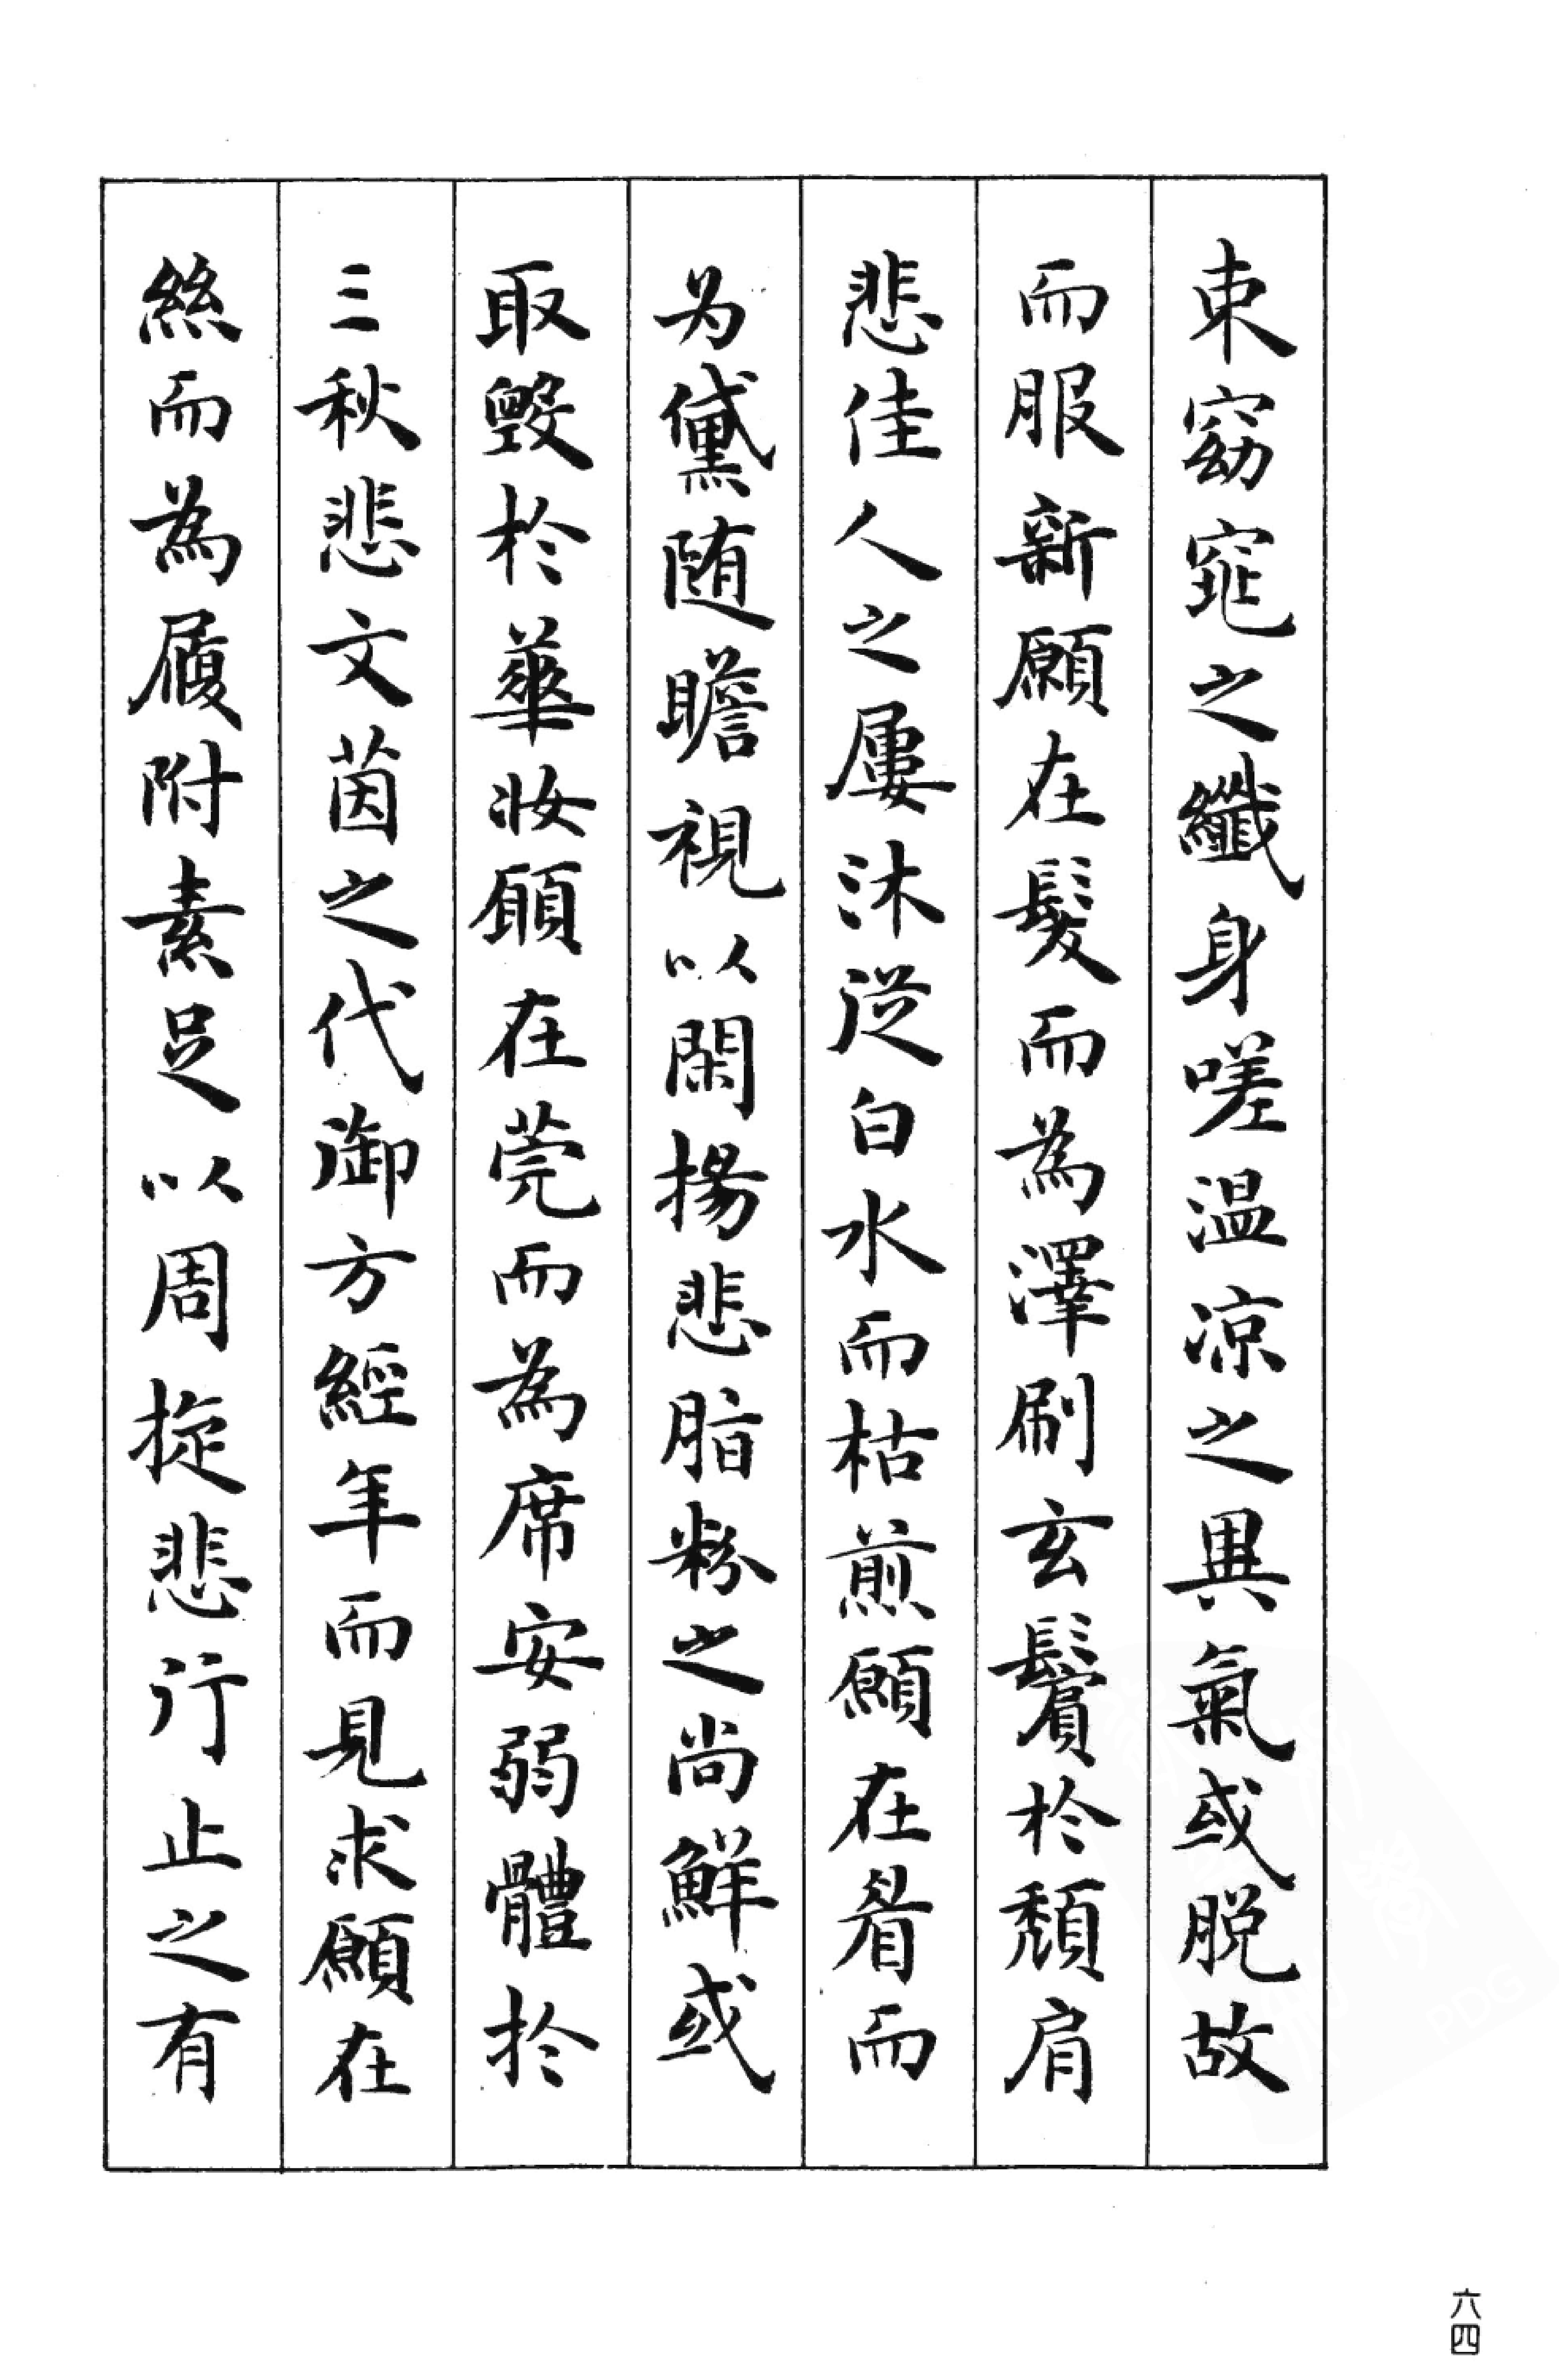 束窈窕之纖身嗟温凉之異氣或脱故
而服新願在髮而為澤刷玄鬢於頹肩
悲佳人之屢沐從白水而枯煎願在眉而
为黛随瞻視以閑揚悲脂粉之尚鮮或
取毀於華妝願在莞而為席安弱體於
三秋悲文茵之代御方經年而見求願在
絲而為履附素足以周旋悲行止之有
六四